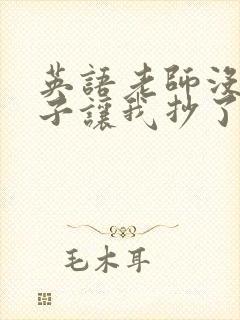 英語老師沒
子讓我抄了
毛木耳